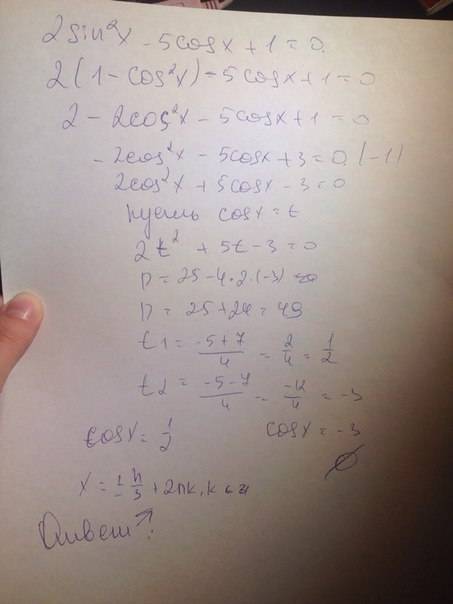 2sin²x - 5cosx + 1 = 0.
2(1 - cos²x) - 5cosx + 1 = 0
2 - 2cos²x - 5cosx + 1 = 0
- 2cos²x - 5cosx + 3 = 0 (-1)
2cos²x + 5cosx - 3 = 0
пусть cosx = t
2t² + 5t - 3 = 0
D = 25 - 4·2·(-3)
D = 25 + 24 = 49
t1 = (-5+7)/4 = 2/4 = 1/2
t2 = (-5-7)/4 = -12/4 = -3
cosx = 1/2 cosx = -3
∅
x = ± π/3 + 2πk, k ∈ z
Ответ ↗